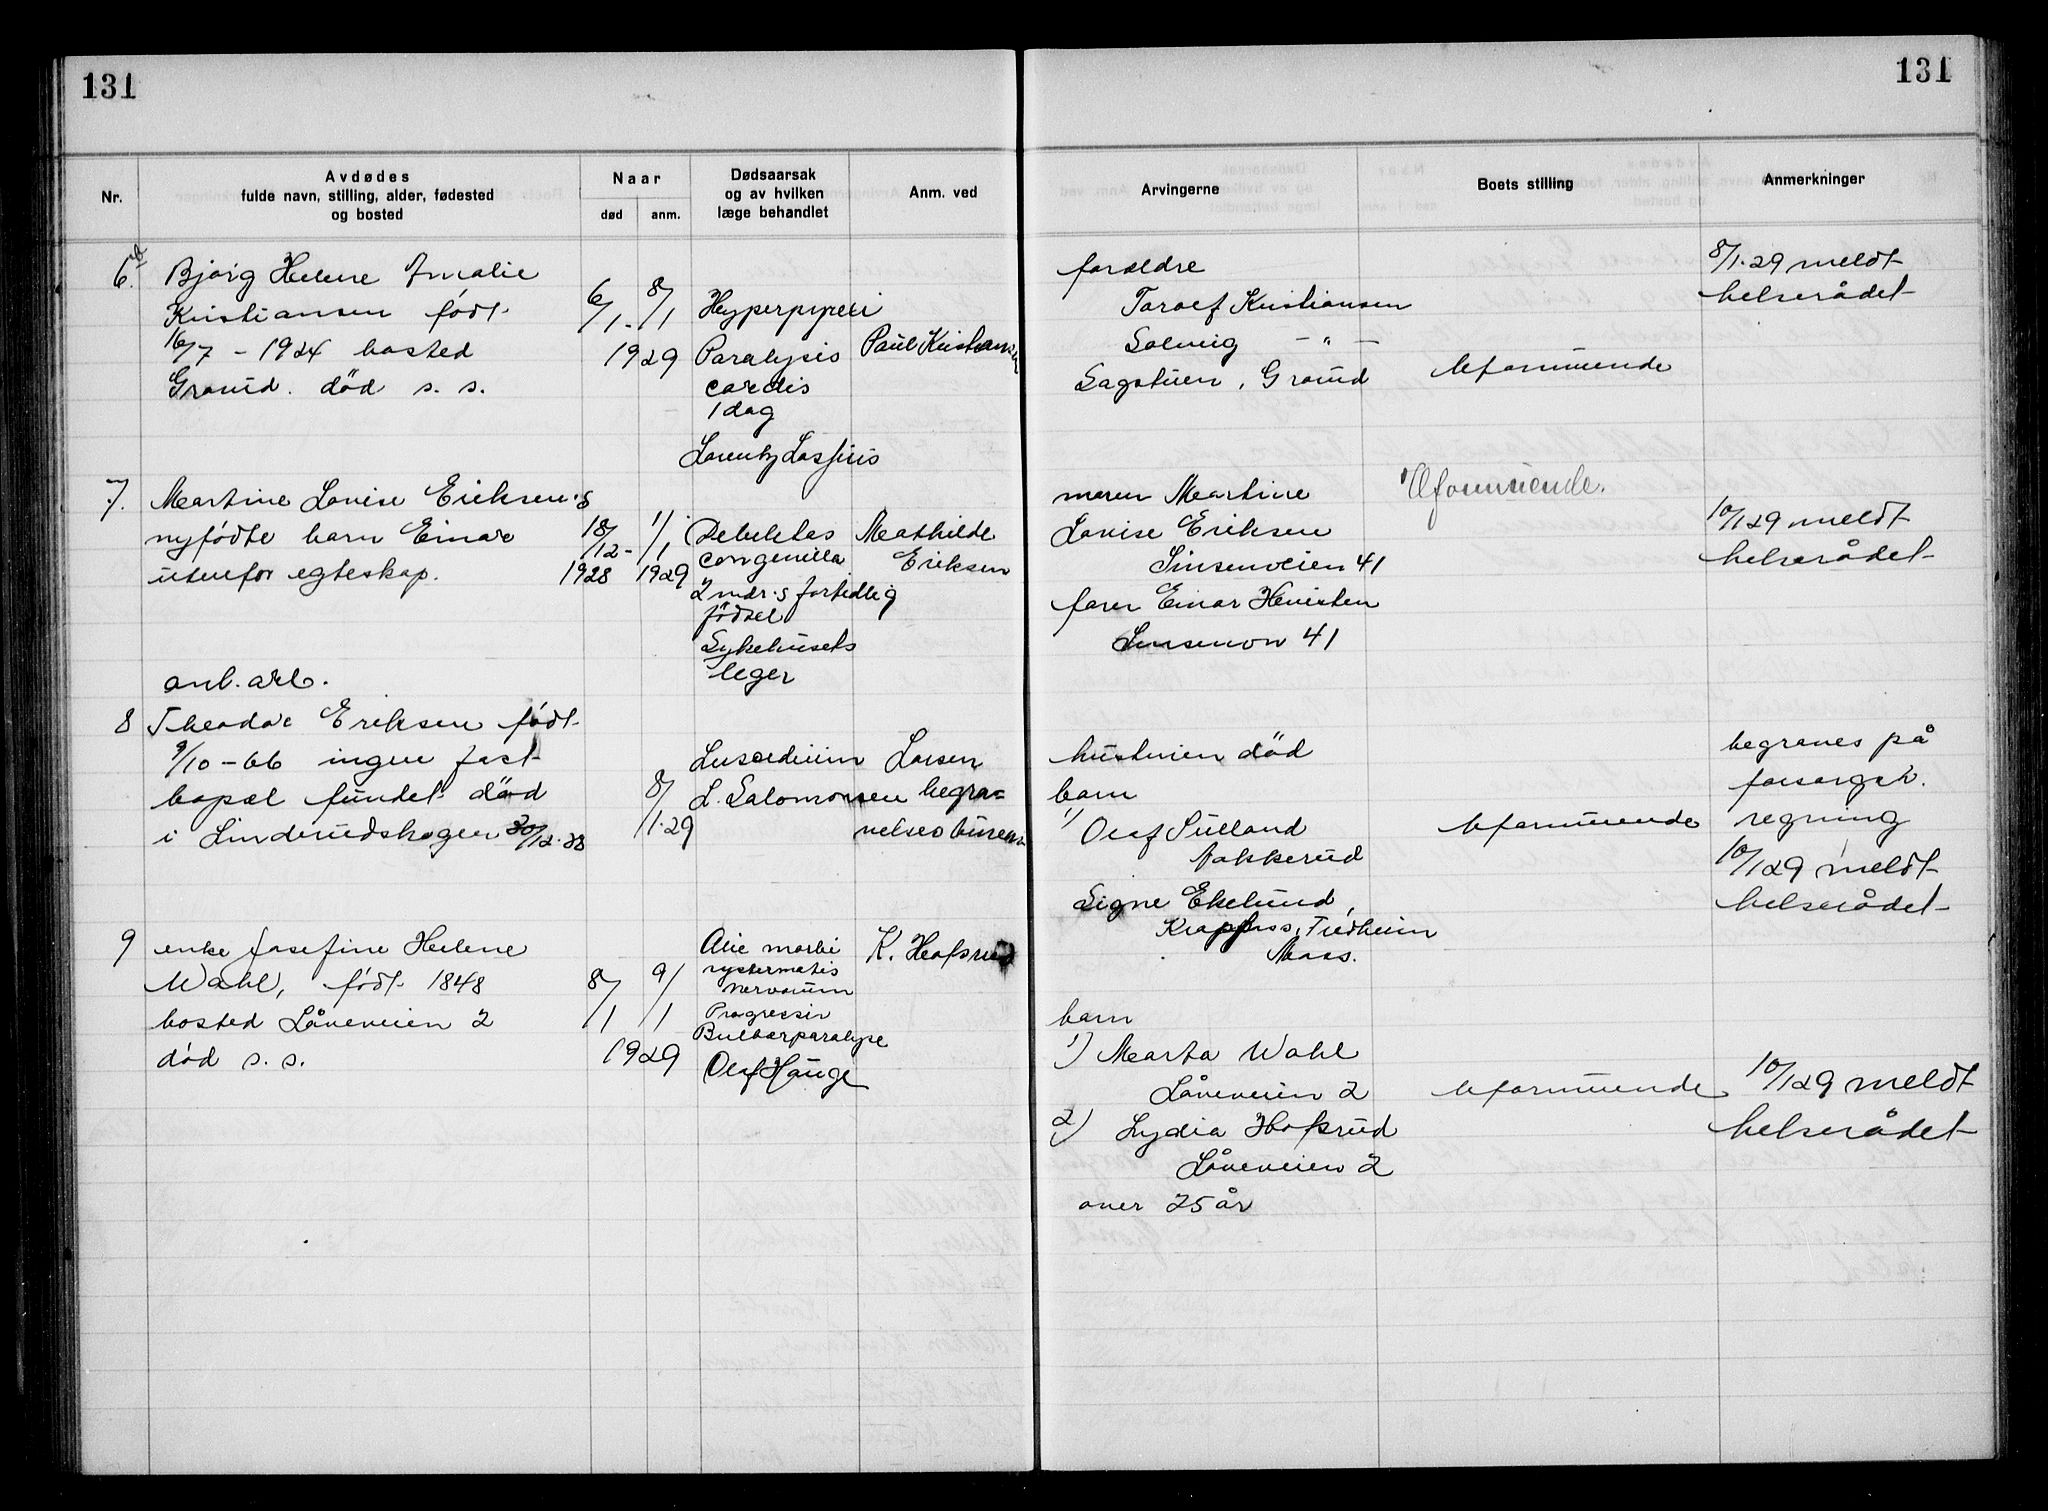 131
131
Nr.
Avdødes
fulde navn, stilling, alder, fødested
og bosted
Naar
død
anm.
Dødsaarsak
og av hvilken
læge behandlet
Anm. ved
Arvingerne
Boets stilling
Anmerkninger
6.
Bjørg Helene Amalie
Kristiansen født
16/7 - 1924 bosted
Grorud. død s. s.
6/1 - 8/1
1929
Hyperpyrexi
Paralysis
cordis
1 dag
Paul Kristiansen
forældre
Toralf Kristiansen
Solveig — " —
Sagstuen, Grorud
Uformuende
8/1.29 meldt
helserådet
7.
Martine Lovise Eriksen's
nyfødte barn Einar
utenfor egteskap.
18/12 - 1/1
1928 1929
Debilitas
congenita
2 mdr.s fortidlig
fødsel
Sykehusets
leger
Mathilde
Eriksen
moren Martine
Lovise Eriksen
Sinsenveien 41
faren Einar
Sinsenvn 41
Uformuende.
10/1 29 meldt
helserådet
anl. arb.
8
Theodor Eriksen født
9/10 - 66 ingen fast
bopæl fundet død
i Linderudskogen 30/12.28
8/1.29
Suicidium
L. Salomonsen
Larsen
begra=
velsesbureau
hustruen død
barn
1) Olaf Sulland
Bakkerud
Signe Ekelund,
Krapfoss, Fredheim
Moss.
Uformuende
begraves på
forsorgsv.
regning
10/1 29 meldt
helserådet
9
enke Josefine Helene
Wahl, født 1848
bosted Låveveien 2
død s. s.
8/1 9/1
1929
Alie morbi
systematis
nervorum
Progressiv
Bulbærparalyse
Olaf Hauge
K. Hofsrud
barn
1) Marta Wahl
Låveveien 2
2) Lydia Hofsrud
Låveveien 2
over 25 år
Uformuende
10/1 29 meldt
helserådet